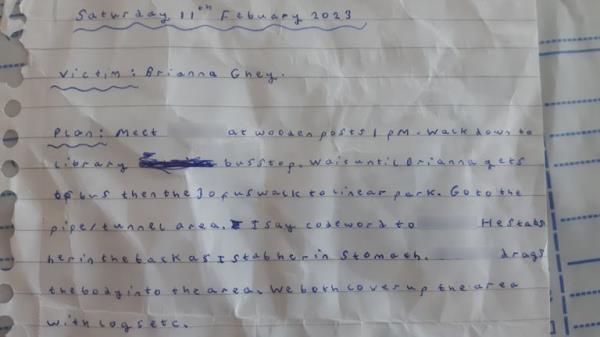 Saturday 11th Febuary 2023
Victim: Brianna Ghey.
Plan: Meet at wooden posts 1 pm. Walk down to
library bus stop. Wait until Brianna gets
off bus then the 3 of us walk to linear park. Go to the
pipe/tunnel area. I say code word to He stabs
her in the back as I stab her in stomach. drags
the body into the area. We both cover up the area
with logs etc.